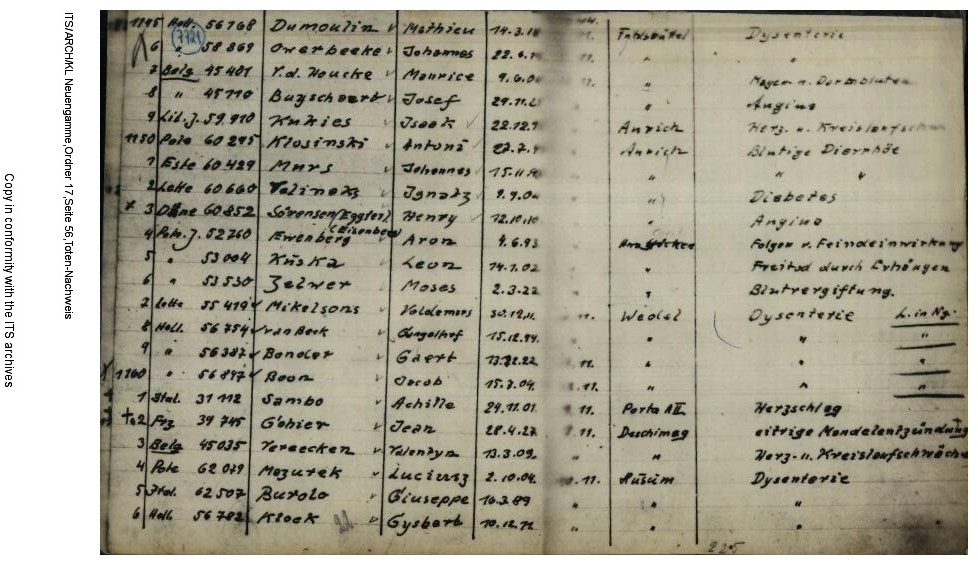 Copy in conformity with the ITS archives
ITS/ARCH/KL Neuengamme,Ordner 17,Seite 56,Toten-Nachweis
1145 Holl. 56768 Dumoulin Mathieu 14.3. 11. Fuhlsbüttel Dysenterie
(7721)
6 " 58869 Owerbeeke Johannes 22. 11. " "
7 Belg 45481 V.d. Houcke Maurice 9.6.0 11. " Magen u. Darmbluten
8 " 45710 Buyschaert Josef 29.11. " Angina
9 Lit.J. 59910 Kukies Isaak 22.12. Aurich Herz. u. Kreislaufschw
1150 Pole 60295 Klosinski Antoni Aurich Blutige Diarrhöe
1 Este 60429 Murs Johannes 15.11. " " "
2 Lette 60660 Valinoks Ignatz 9.9.0 " Diabetes
x 3 Däne 60852 Sörensen (Eggler) Henry 12.10.10 " Angina
(Eisenberg)
4 Poln.J. 52760 Ewenberg Aron 9.6.93 Folgen v. Feindeinwirkung
5 " 53004 Kuska Leon 14.1.02 " Freitod durch Erhängen
6 " 53530 Zelwer Moses 2.3.22 " Blutrergiftung.
7 Lette 55419 Mikelsons Voldemars 30.12. 11. Wedel Dysenterie L. in Ng.
8 Holl. 56754 van Beek Engelhof 15.12. " " "
9 " 56387 Bonder Geert 22 11. " " "
1160 " 56897 Boon Jacob 15.7.04. 11. " " "
1 Ital. 31112 Sambo Achille 29.11.01 11. Porta AII Herzschlag
2 Frz 39745 Gohier Jean 28.4.27 11. Deschimag eitrige Mandelentzündung
3 Belg 45035 Vereecken Valentyn 13.3.09. " " Herz- u. Kreislaufschwäche
4 Pole 62079 Mazurek Lucjusz 2.10.04. .11. Husum Dysenterie
5 Ital. 62507 Burolo Giuseppe 16.3.89 " " "
6 Holl. 56782 Kloek Gysbert 10.12. " " "
225